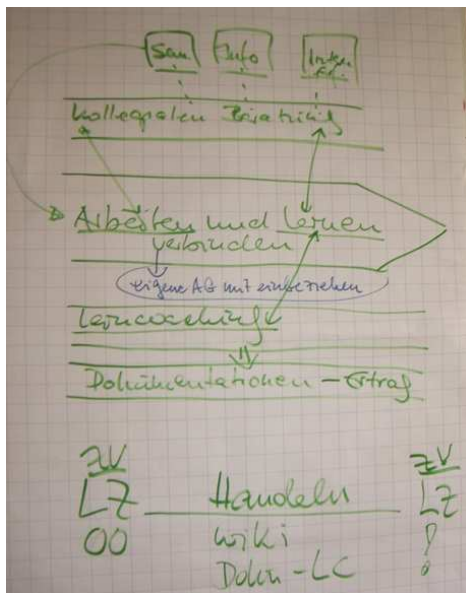 Sem. Info
Kollegialen Beratung
Arbeiten und Lernen
verbinden
eigene AG mit einbeziehen
Lerncoaching
Dokumentationen - Ertrag
ZV ZV
LZ Handeln LZ
OO Wiki ?
Doku-LC